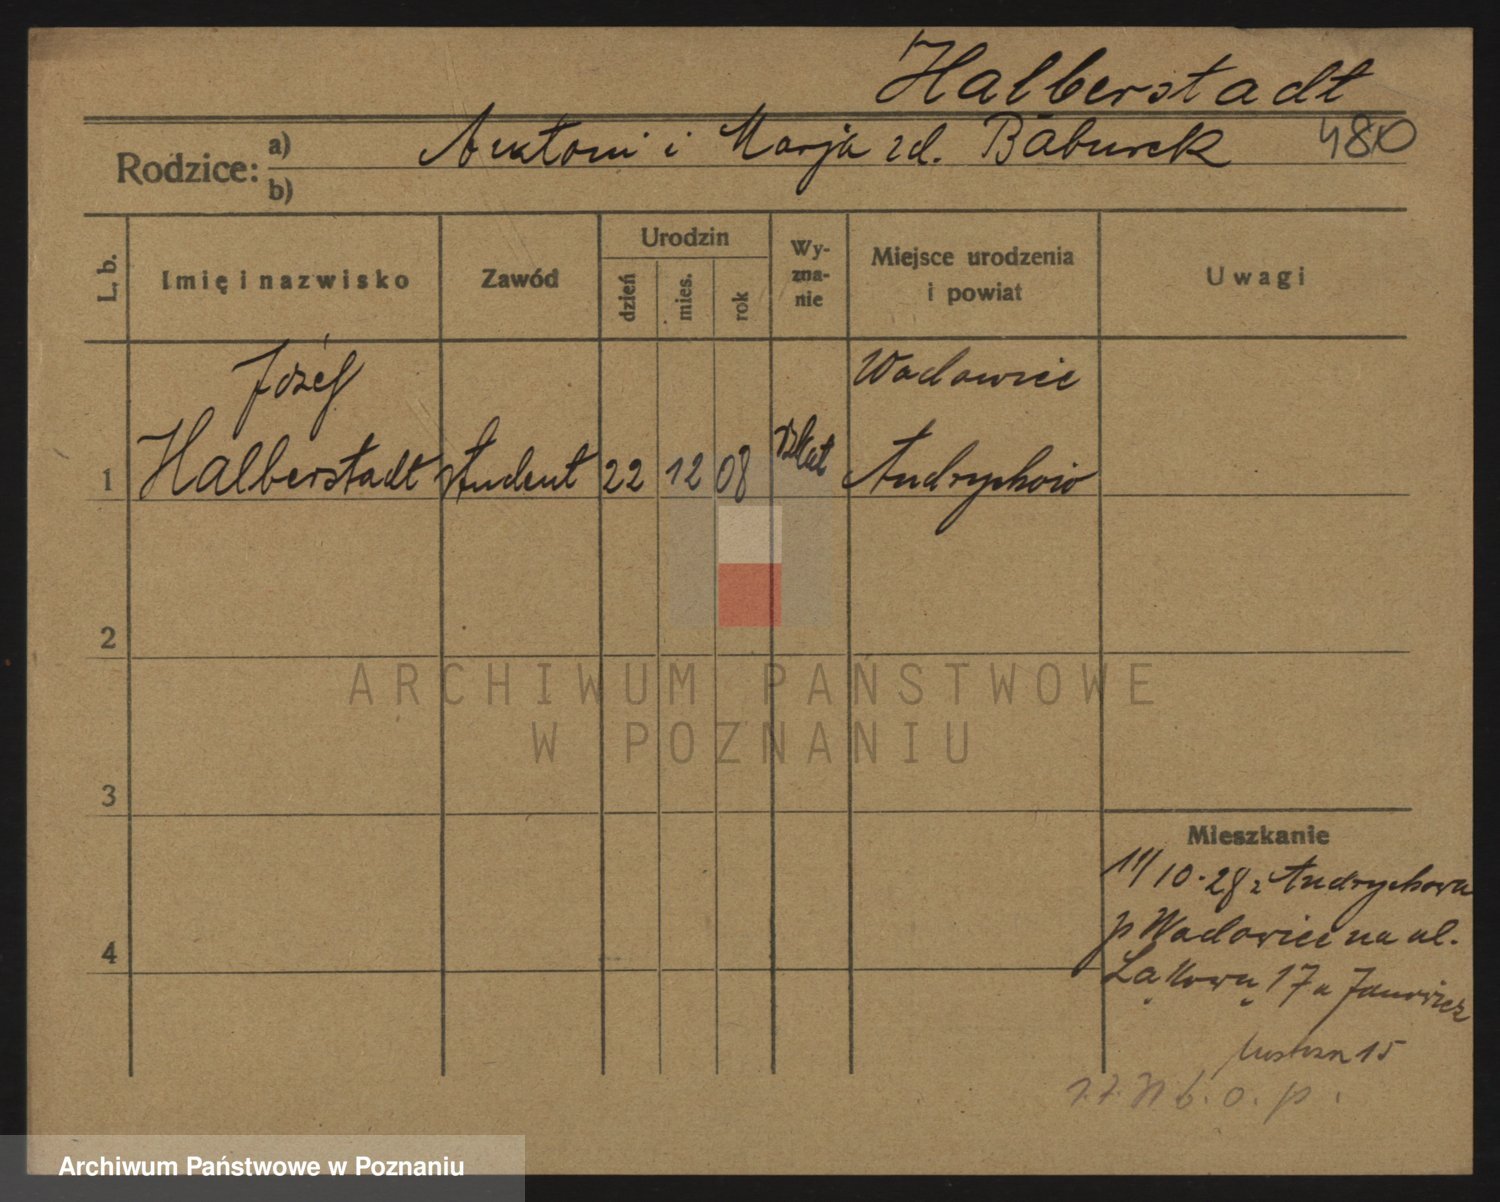 Halberstadt
Rodzice: a) Antoni i Marja zd. Baburek 480
b)
L. b. Imię i nazwisko Zawód Urodzin dzień mies. rok Wy-zna-nie Miejsce urodzenia i powiat Uwagi
Józef Wadowice
1 Halberstadt student 22 12 08 rzkat Andrychów
2
ARCHIWUM PAŃSTWOWE
W POZNANIU
3
Mieszkanie
11/10.28 z Andrychowa
p Wadowice na ul.
4
Łąkową 17 u Janowicz
15
b. o. p.
Archiwum Państwowe w Poznaniu